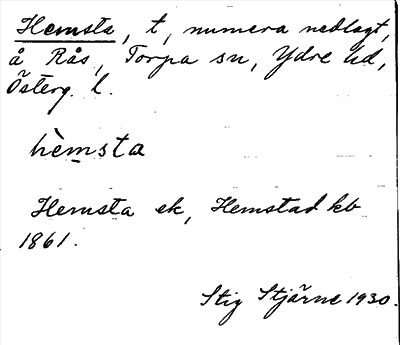 Hemsta, t, numera nedlagt,
å Rås, Torpa sn, Ydre hd,
Österg. l.
hèmsta
Hemsta ek, Hemstad kb
1861.
Stig Stjärne 1930.